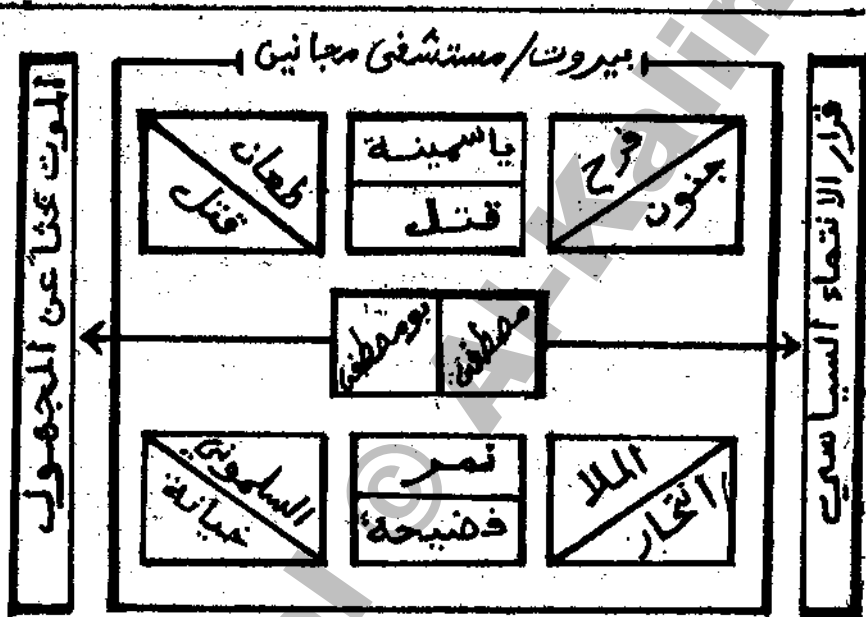 بيروت/مستشفى مجانين
قرار الانتماء السياسي
فرح
جنون
ياسمينة
قتل
طعان
قتل
مصطفى
بو مصطفى
الملا
انتحار
نمر
فضيحة
السلموني
خيانة
الموت بحثاً عن المجهول
© Al-Kalim